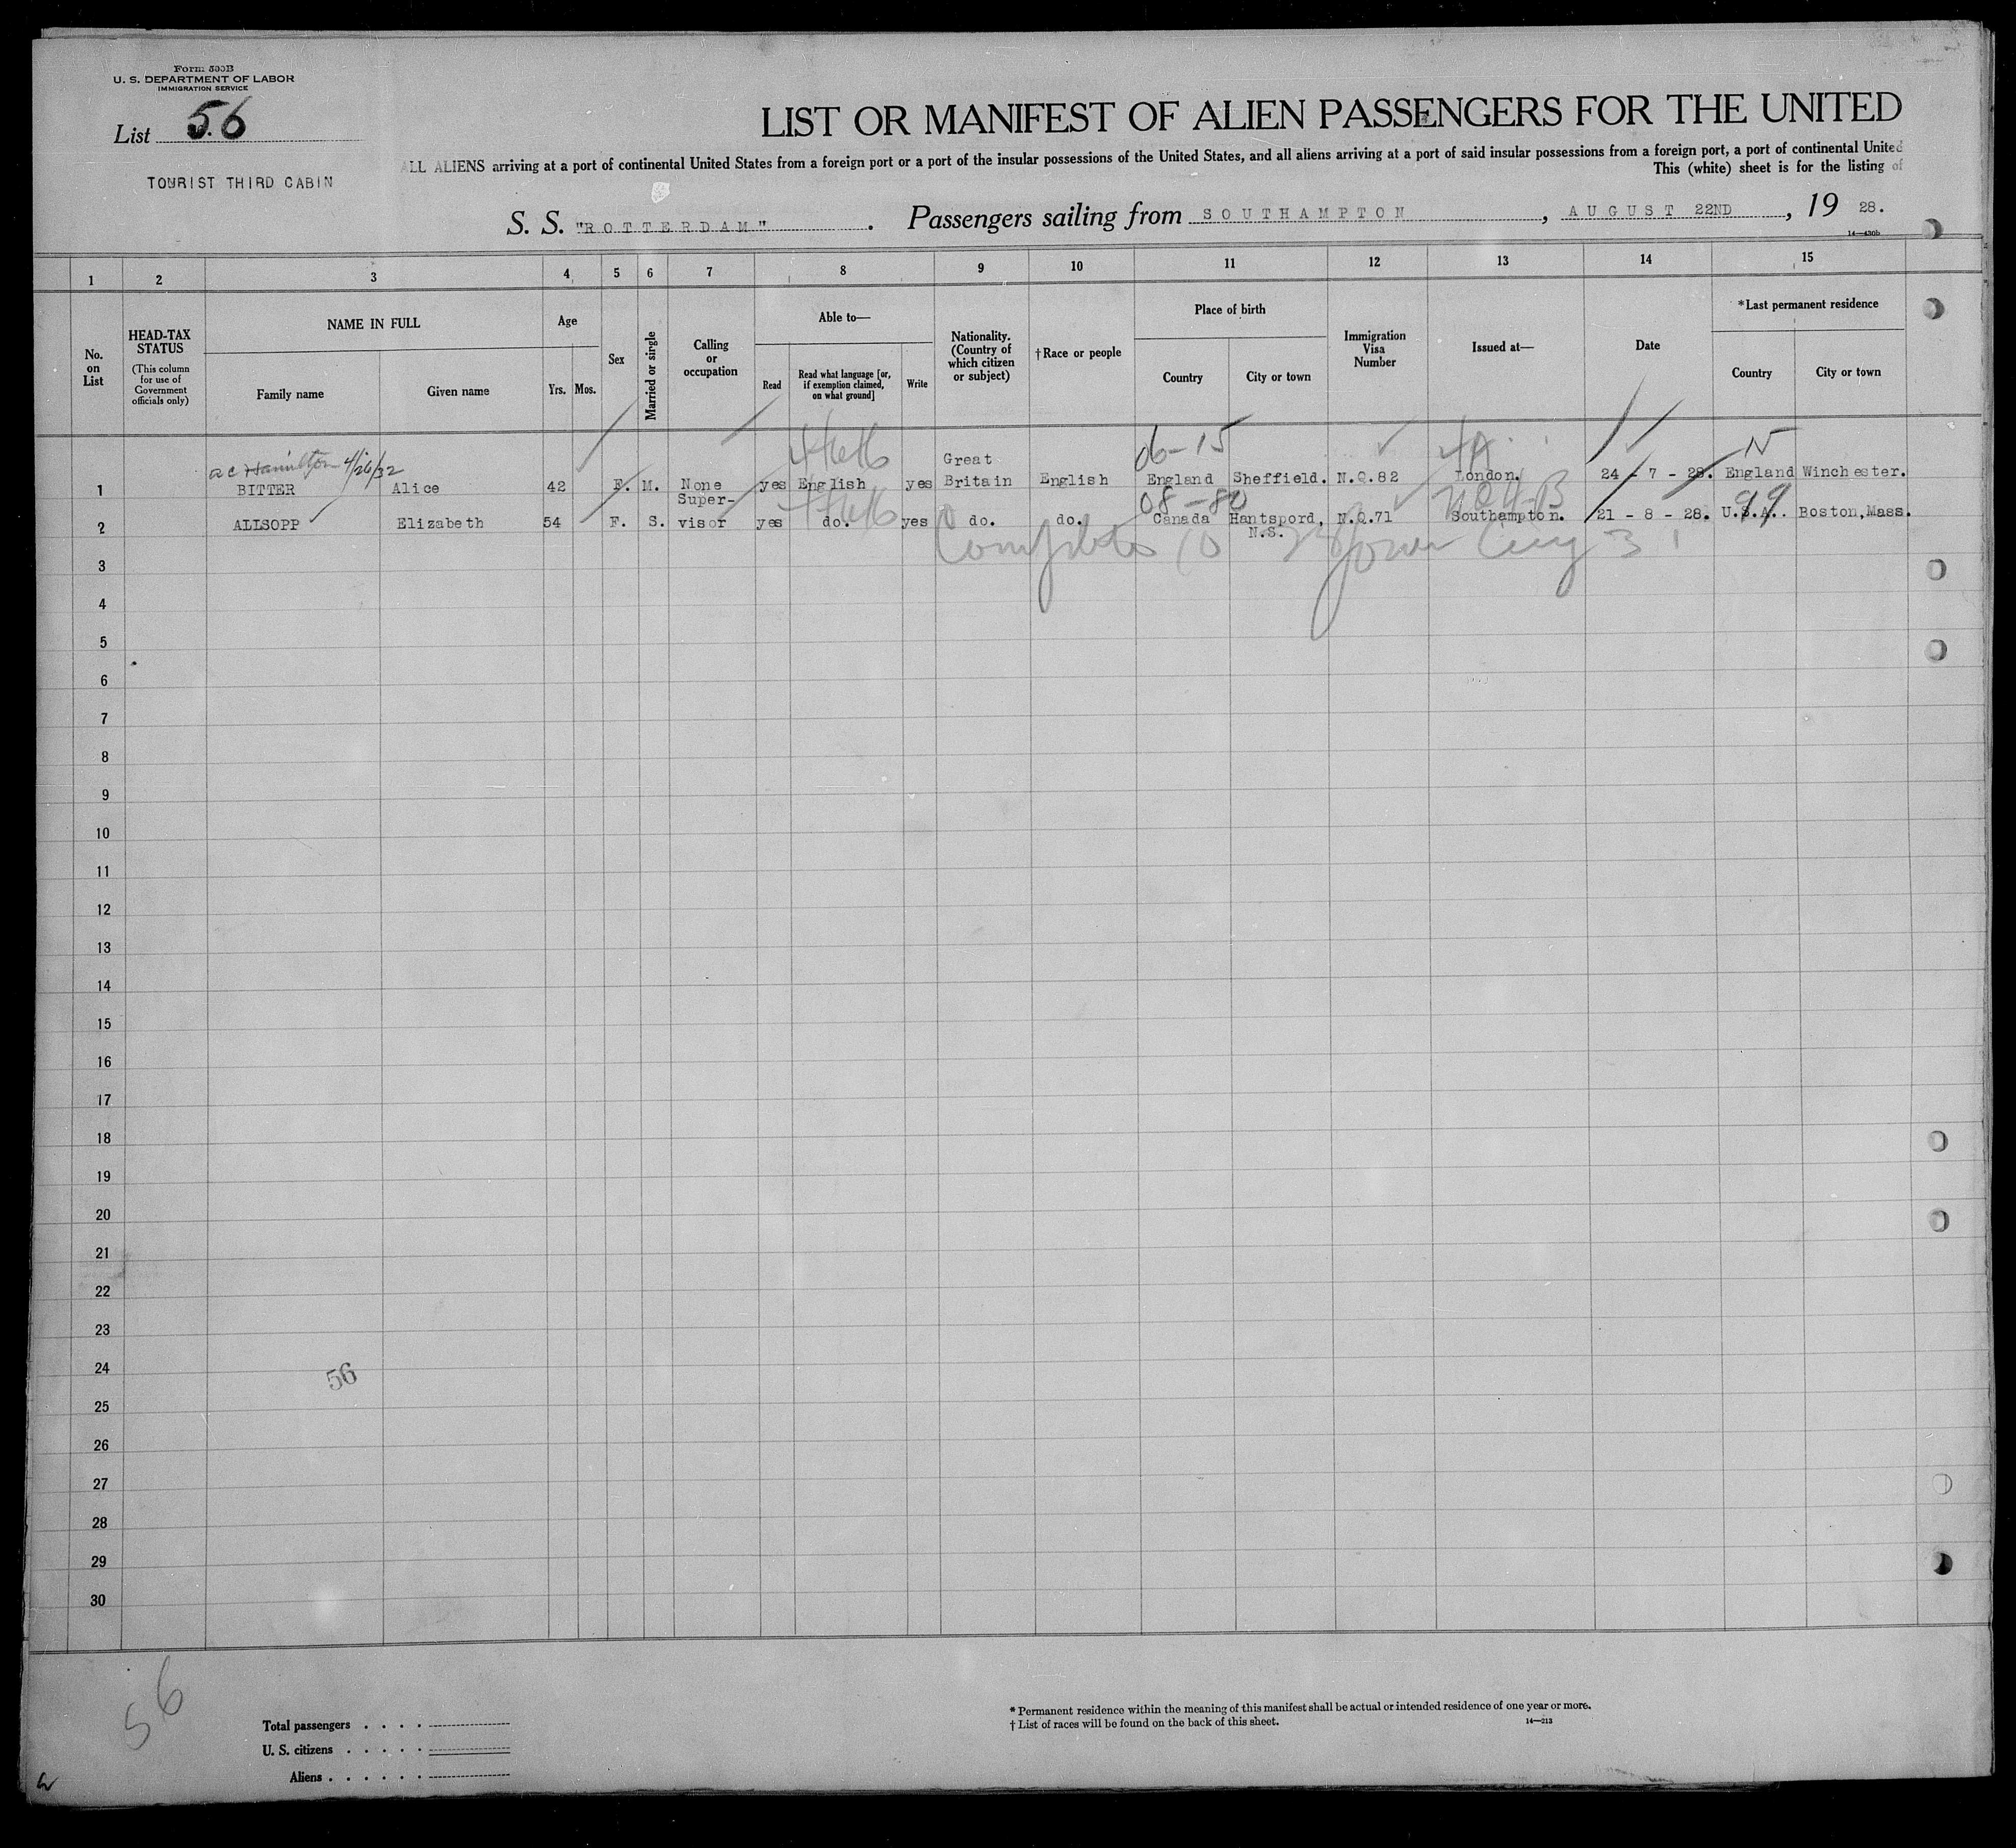 Form 500B
U. S. DEPARTMENT OF LABOR
IMMIGRATION SERVICE
List 56
TOURIST THIRD CABIN
LIST OR MANIFEST OF ALIEN PASSENGERS FOR THE UNITED
ALL ALIENS arriving at a port of continental United States from a foreign port or a port of the insular possessions of the United States, and all aliens arriving at a port of said insular possessions from a foreign port, a port of continental United
This (white) sheet is for the listing of
S. S. "ROTTERDAM". Passengers sailing from SOUTHAMPTON, AUGUST 22ND, 19 28.
14—430b
1 2 3 4 5 6 7 8 9 10 11 12 13 14 15
No. on List
HEAD-TAX STATUS
(This column for use of Government officials only)
NAME IN FULL
Family name Given name
Age
Yrs. Mos.
Sex
Married or single
Calling or occupation
Able to—
Read
Read what language [or, if exemption claimed, on what ground]
Write
Nationality. (Country of which citizen or subject)
†Race or people
Place of birth
Country City or town
Immigration Visa Number
Issued at—
Date
*Last permanent residence
Country City or town
Hamilton 4/26/32 06-15 4A N
1 BITTER Alice 42 F. M. None yes English yes Great Britain English England Sheffield. N.Q.82 London. 24 - 7 - 28. England Winchester.
08-80 99
2 ALLSOPP Elizabeth 54 F. S. Super-visor yes do. yes do. do. Canada Hantspord, N.S. N.Q.71 Southampton. 21 - 8 - 28. U.S.A.. Boston,Mass.
3
4
5
6
7
8
9
10
11
12
13
14
15
16
17
18
19
20
21
22
23
24
56
25
26
27
28
29
30
56
Total passengers
U. S. citizens
Aliens
* Permanent residence within the meaning of this manifest shall be actual or intended residence of one year or more.
† List of races will be found on the back of this sheet.
14—213